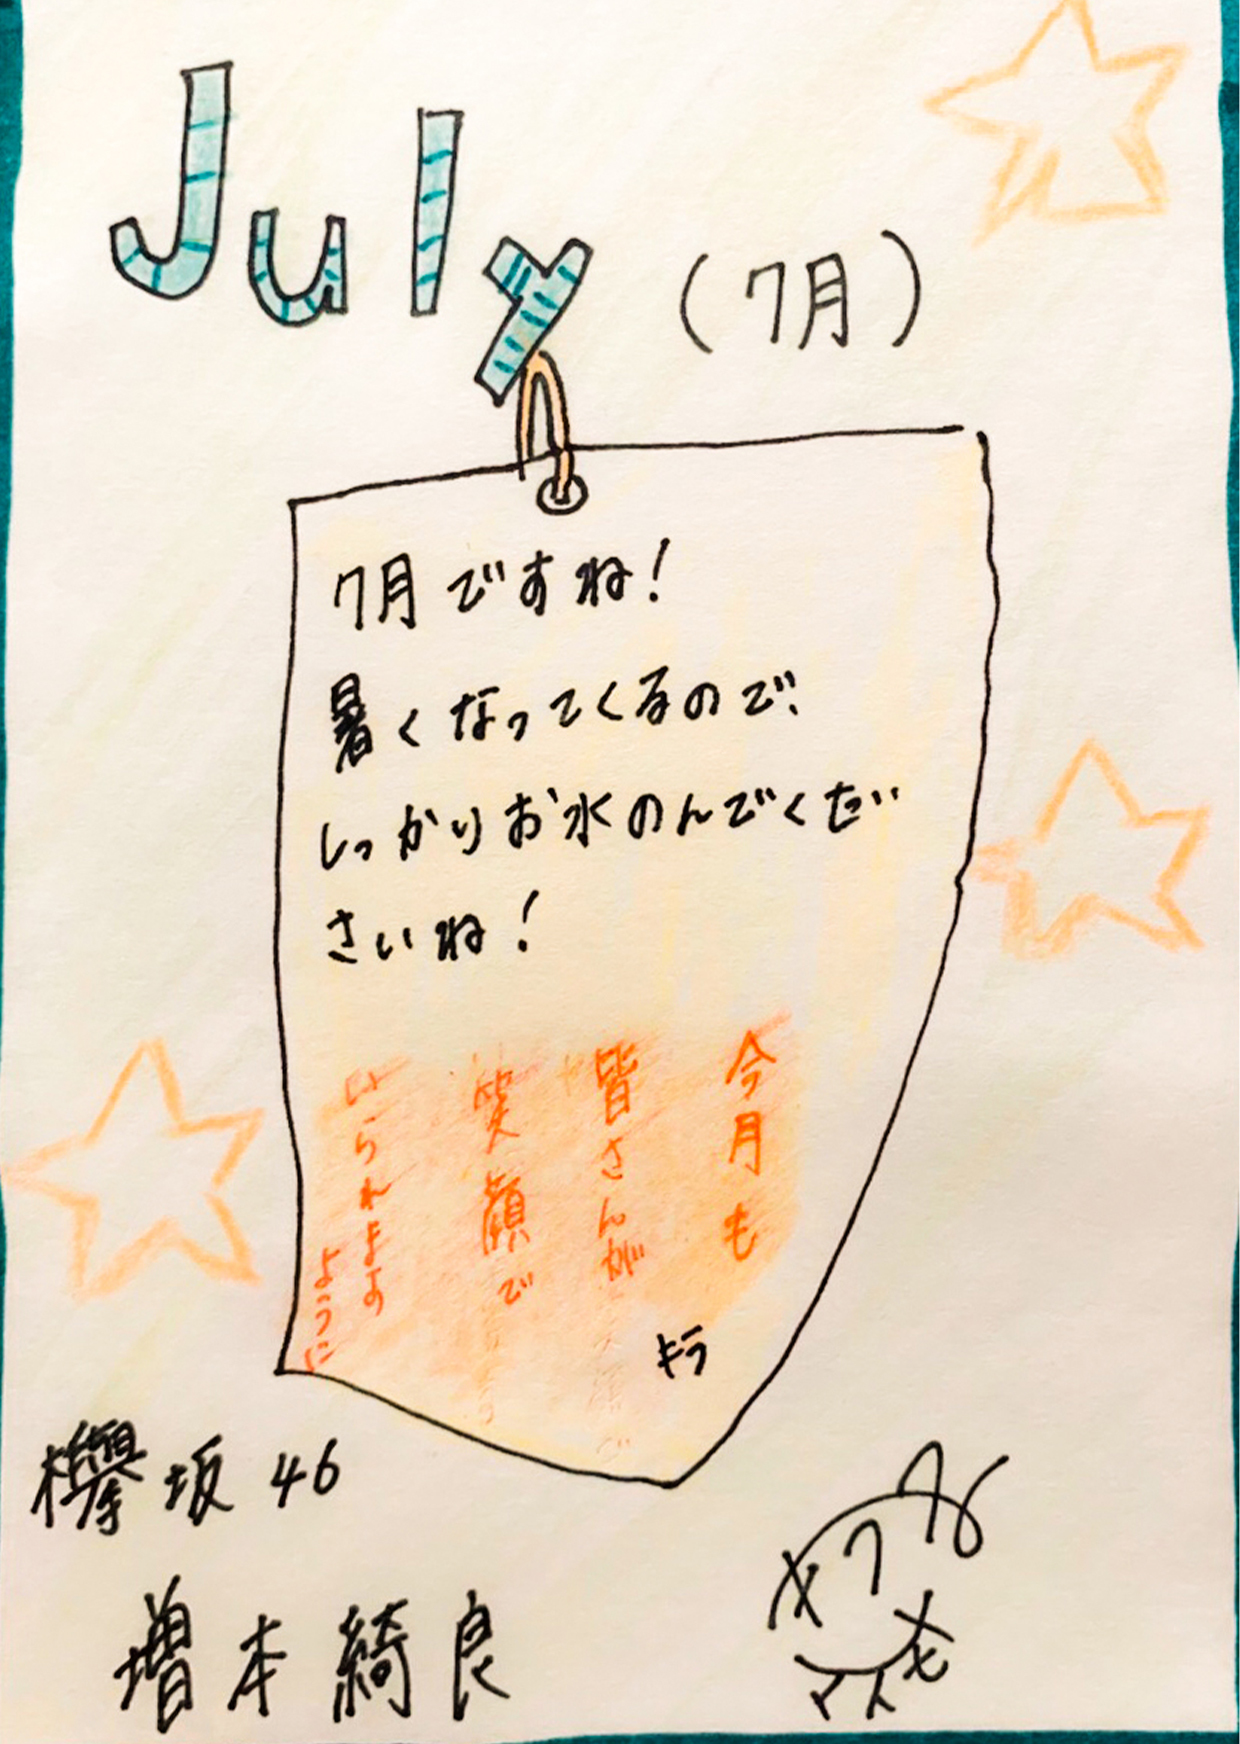 July (7月)
7月ですね!
暑くなってくるので、
しっかりお水のんでくだ
さいね!
今月も
皆さんが
笑顔で
いられますの
ように
キラ
欅坂46
増本綺良